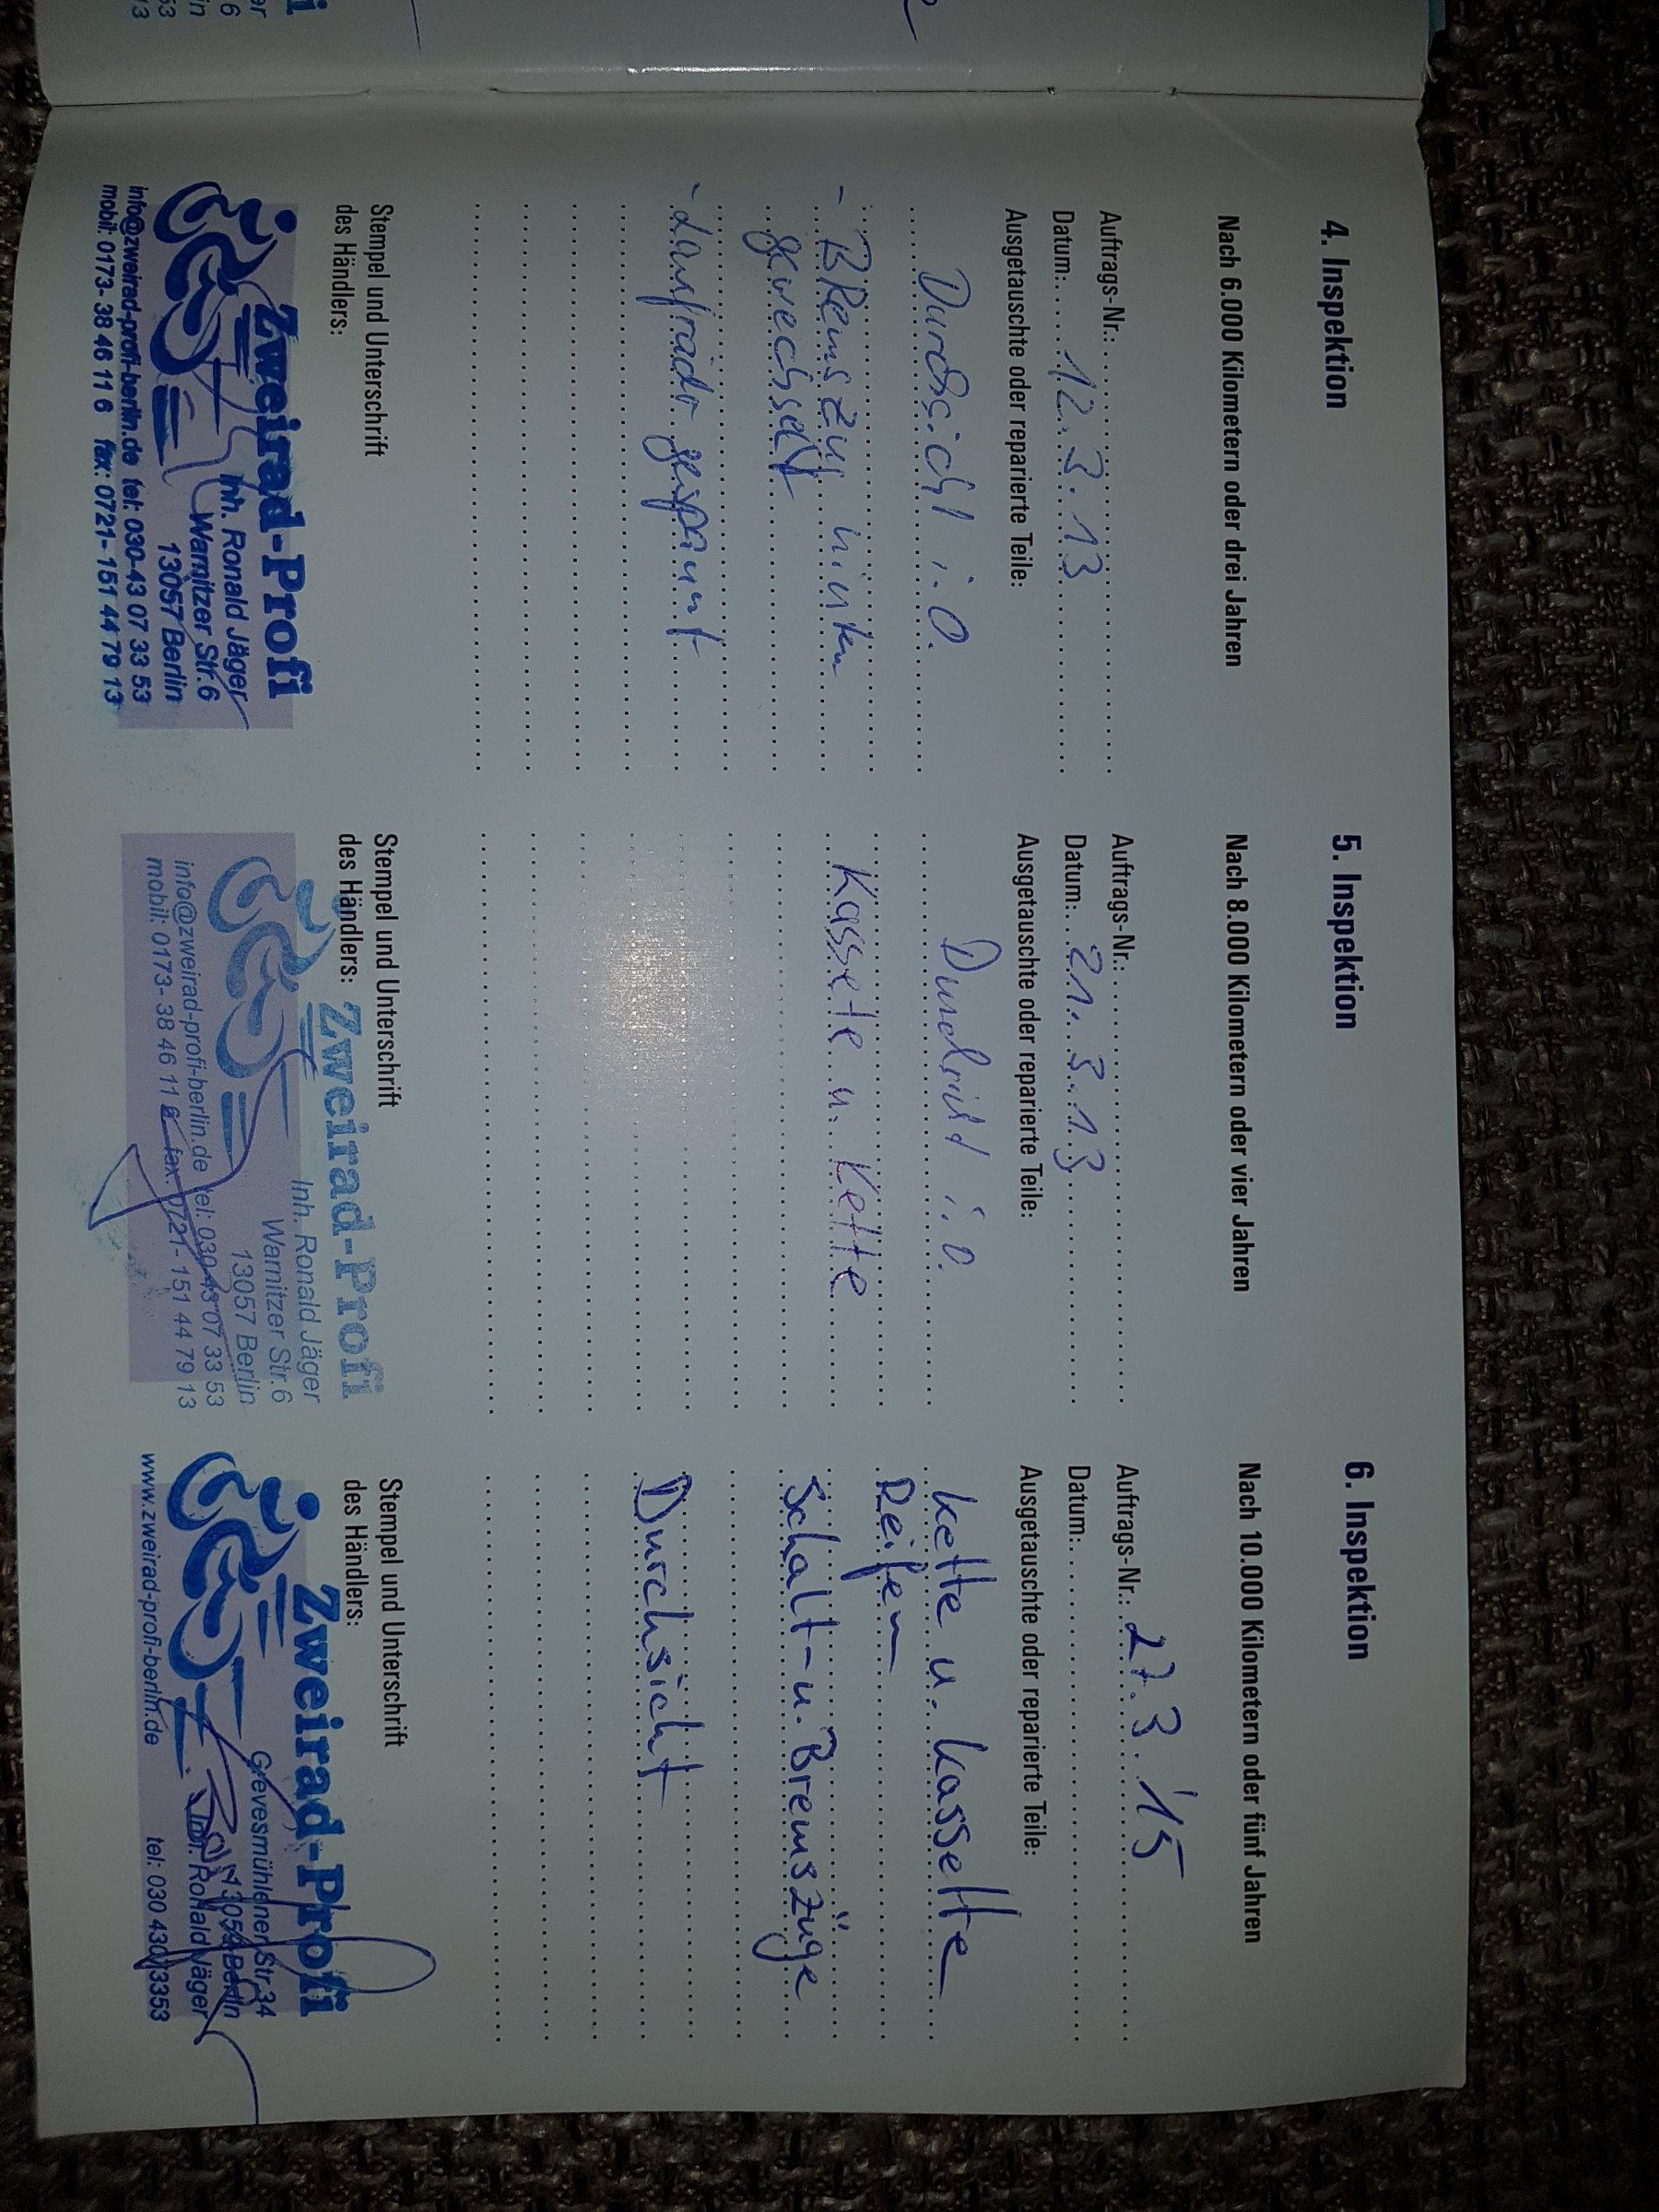 4. Inspektion
Nach 6.000 Kilometern oder drei Jahren
Auftrags-Nr.:
Datum: 12.3.13
Ausgetauschte oder reparierte Teile:
Durchsicht i.O.
- Bremszug hinten
gewechselt
- Laufräder gespannt
Stempel und Unterschrift
des Händlers:
Zweirad-Profi
Inh. Ronald Jäger
Warnitzer Str.6
13057 Berlin
info@zweirad-profi-berlin.de tel: 030-43 07 33 53
mobil: 0173- 38 46 11 6 fax: 0721- 151 44 79 13
5. Inspektion
Nach 8.000 Kilometern oder vier Jahren
Auftrags-Nr.:
Datum: 21.3.13
Ausgetauschte oder reparierte Teile:
Durchsicht i.O.
Kassete u. Kette
Stempel und Unterschrift
des Händlers:
Zweirad-Profi
Inh. Ronald Jäger
Warnitzer Str.6
13057 Berlin
info@zweirad-profi-berlin.de tel: 030-43 07 33 53
mobil: 0173- 38 46 11 6 fax: 0721- 151 44 79 13
6. Inspektion
Nach 10.000 Kilometern oder fünf Jahren
Auftrags-Nr.: 27.3.'15
Datum:
Ausgetauschte oder reparierte Teile:
Kette u. Kassette
Reifen
Schalt- u. Bremszüge
Durchsicht
Stempel und Unterschrift
des Händlers:
Zweirad-Profi
Grevesmühlener Str.34
13059 Berlin
Inh. Ronald Jäger
www.zweirad-profi-berlin.de tel: 030 43073353